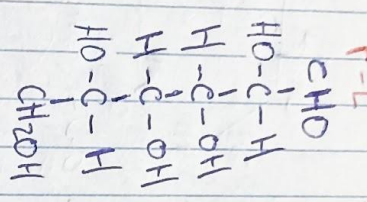 CHO
HO-C-H
H-C-OH
H-C-OH
HO-C-H
CH2OH